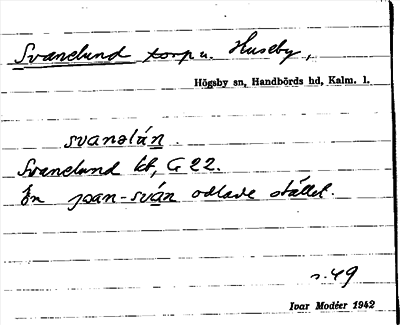 Svanelund torp u. Huseby,
Högsby sn, Handbörds hd, Kalm. l.
svanəlún.
Svanelund kt, G 22.
En joan-sván odlade stället.
s. 49
Ivar Modéer 1942